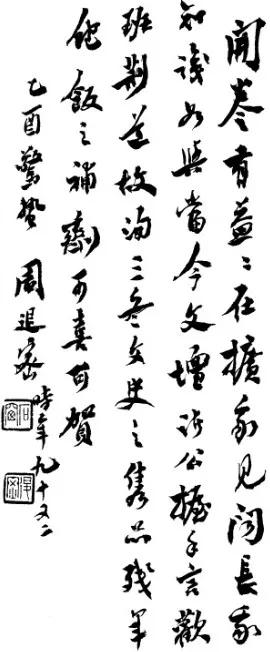 開卷有益〻在擴我見聞長我
知識如與當今文壇諸公握手言歡
班荆道故洵三冬文史之雋品殘年
飽飯之補劑可喜可賀
乙酉驚蟄 周退密 時年九十又二